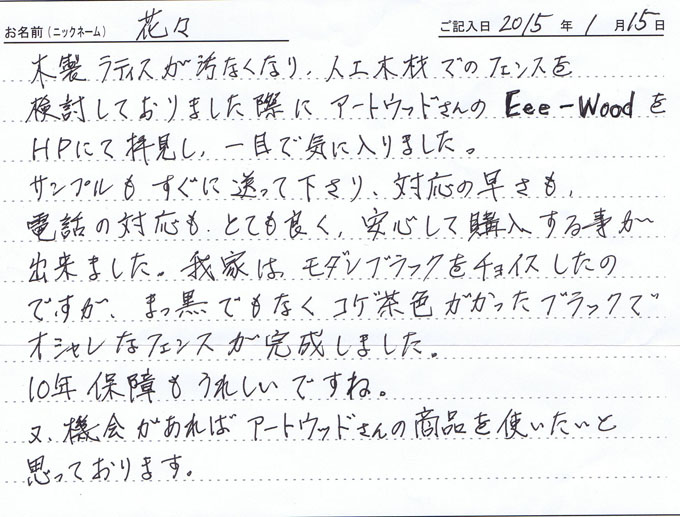 お名前(ニックネーム) 花々 ご記入日 2015 年 1 月 15 日
木製ラティスが汚なくなり、人工木材でのフェンスを
検討しておりました際に アートウッドさんの Eee-Wood を
HPにて拝見し、一目で気に入りました。
サンプルもすぐに送って下さり、対応の早さも、
電話の対応も、とても良く、安心して購入する事が
出来ました。我家は モダンブラックをチョイスしたの
ですが、まっ黒でもなくコゲ茶色がかったブラックで
オシャレなフェンスが完成しました。
10年保障もうれしいですね。
又、機会があればアートウッドさんの商品を使いたいと
思っております。